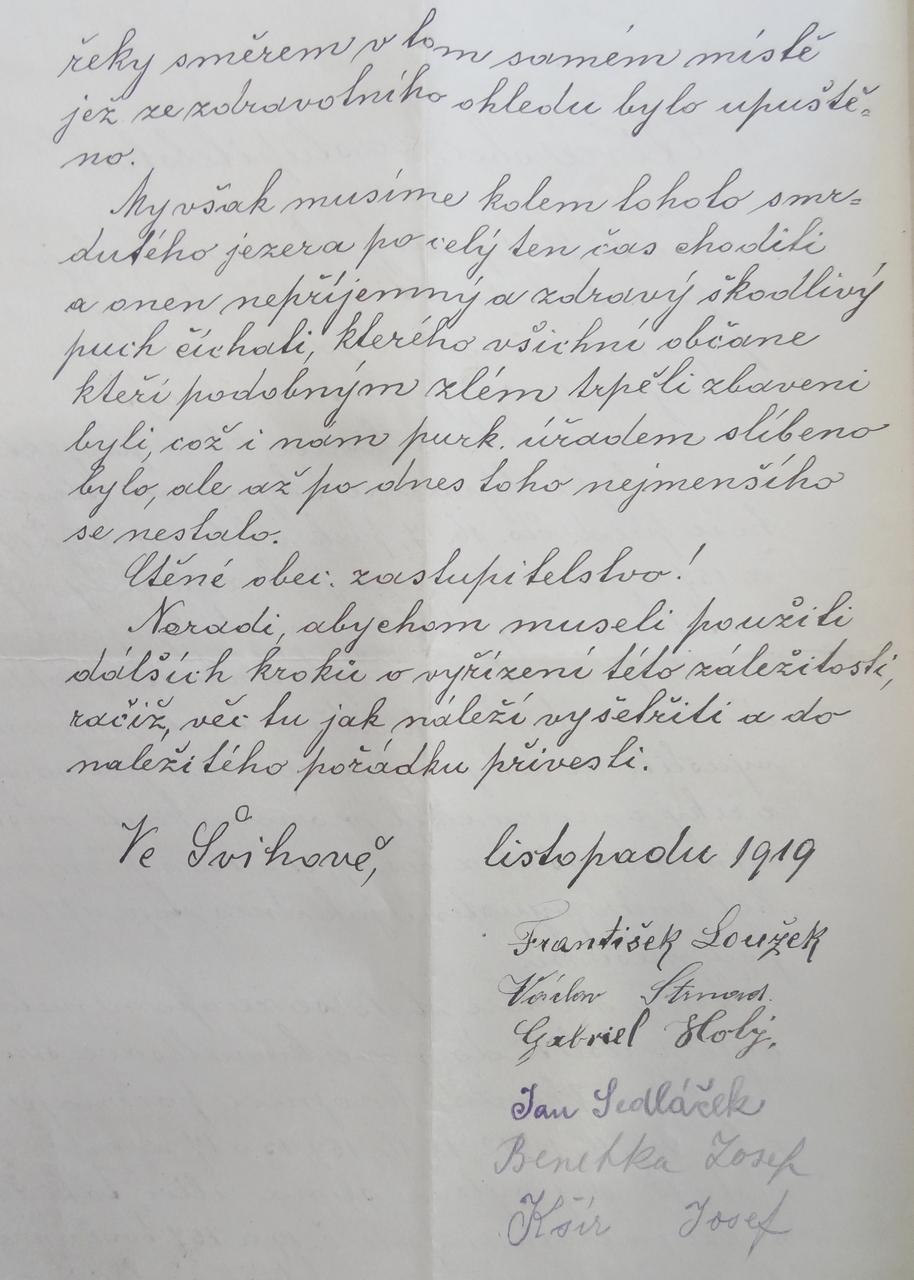 řeky směrem v tom samém místě
jež ze zdravotního ohledu bylo upuště=
no.
My však musíme kolem tohoto smr=
dutého jezera po celý ten čas choditi
a onen nepříjemný a zdravý škodlivý
puch číchati, kterého všichní občane
kteří podobným zlém trpěli zbaveni
byli, což i nám purk. úřadem slíbeno
bylo, ale až po dnes toho nejmenšího
se nestalo.
Ctěné obec. zastupitelstvo!
Neradi, abychom museli použiti
dálších kroků o vyřízení této záležitosti,
račiž, věc tu jak náleží vyšetřiti a do
naležitého pořádku přivesti.
Ve Švihově, listopadu 1919
František Loužek
Václav Strnad.
Gabriel Holý.
Jan Sedláček
Benetka Josef
Kšír Josef